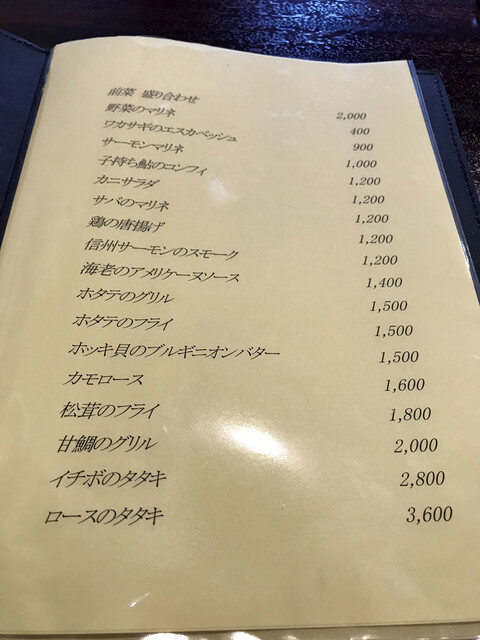 前菜 盛り合わせ 2,000
野菜のマリネ 400
ワカサギのエスカベッシュ 900
サーモンマリネ 1,000
子持ち鮎のコンフィ 1,200
カニサラダ 1,200
サバのマリネ 1,200
鶏の唐揚げ 1,200
信州サーモンのスモーク 1,200
海老のアメリケーヌソース 1,400
ホタテのグリル 1,500
ホタテのフライ 1,500
ホッキ貝のブルギニオンバター 1,500
カモロース 1,600
松茸のフライ 1,800
甘鯛のグリル 2,000
イチボのタタキ 2,800
ロースのタタキ 3,600